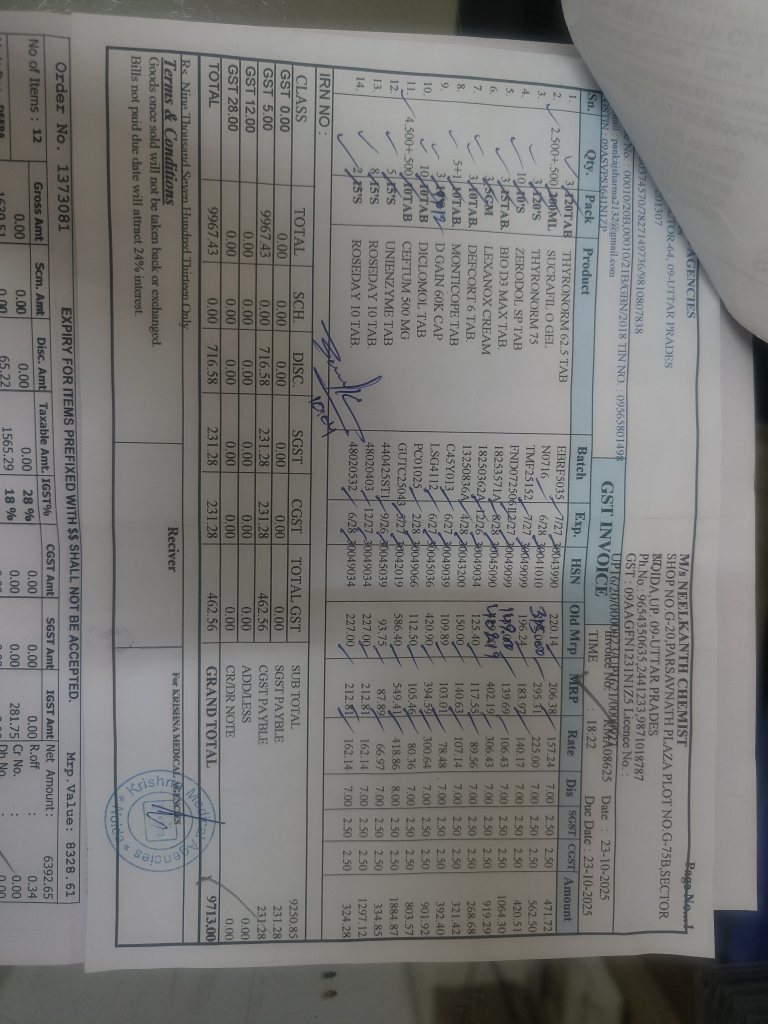 AGENCIES
TOR-64, 09-UTTAR PRADES
201307
0374570/7827149736/9810807838
No. : 00010/20B,00010/21B/GBN/2018 TIN NO. : 09565801498
pankajsharma2132@gmail.com
GSTIN : 09ASVPS3641N1ZP
GST INVOICE
Page No...1
M/s NEELKANTH CHEMIST
SHOP NO.G-20,PARSAVNATH PLAZA PLOT NO.G-75B,SECTOR
NOIDA,UP 09-UTTAR PRADES
Ph.No.:9654350635,2441233,9871018787
GST : 09AAGFN1231N1Z5 Licence No :
Invoice No. A08625 Date : 23-10-2025
TIME : 18:22 Due Date : 23-10-2025
Sn. Qty. Pack Product Batch Exp. HSN Old Mrp MRP Rate Dis SGST CGST Amount
1. 3 120TAB THYRONORM 62.5 TAB EBRF5035 7/27 30043990 220.14 206.38 157.24 7.00 2.50 2.50 471.72
2. 2.500+.500 200ML SUCRAFIL O GEL N0716 6/28 30041010 295.31 225.00 7.00 2.50 2.50 562.50
3. 3 120'S THYRONORM 75 TMF25152 7/27 30049099 196.24 183.97 140.17 7.00 2.50 2.50 420.51
4. 10 10'S ZERODOL SP TAB 30049099 149.00 139.69 106.43 7.00 2.50 2.50 1064.30
5. 3 15TAB BIO D3 MAX TAB 18253571A 8/28 30045090 402.19 306.43 7.00 2.50 2.50 919.29
6. LEXANOX CREAM 18250362A 12/26 30049034 125.40 117.55 89.56 7.00 2.50 2.50 268.68
7. 3 10TAB DEFCORT 6 TAB 13250836A 4/28 30043200 150.00 140.63 107.14 7.00 2.50 2.50 321.42
8. 5+1 10TAB. MONTICOPE TAB C45Y013 6/27 30049039 109.89 103.01 78.48 7.00 2.50 2.50 392.40
9. 3 D GAIN 60K CAP LSG4112 6/27 30045036 420.90 394.59 300.64 7.00 2.50 2.50 901.92
10. 10 10TAB DICLOMOL TAB PC01025 2/28 30049066 112.50 105.46 80.36 7.00 2.50 2.50 803.57
11. 4.500+.500 10TAB CEFTUM 500 MG GUTC25043 5/27 30042019 586.40 549.41 418.86 8.00 2.50 2.50 1884.87
12. 5 15'S UNIENZYME TAB 440425ST1 9/26 30045039 93.75 87.89 66.97 7.00 2.50 2.50 334.85
13. 8 15'S ROSEDAY 10 TAB. 48020403 12/27 30049034 227.00 212.81 162.14 7.00 2.50 2.50 1297.12
14. 2 15'S ROSEDAY 10 TAB. 48020532 6/28 30049034 227.00 212.81 162.14 7.00 2.50 2.50 324.28
IRN NO :
CLASS TOTAL SCH. DISC. SGST CGST TOTAL GST
GST 0.00 0.00 0.00 0.00 0.00 0.00 0.00
GST 5.00 9967.43 0.00 716.58 231.28 231.28 462.56
GST 12.00 0.00 0.00 0.00 0.00 0.00 0.00
GST 28.00 0.00 0.00 0.00 0.00 0.00 0.00
TOTAL 9967.43 0.00 716.58 231.28 231.28 462.56
SUB TOTAL 9250.85
SGST PAYBLE 231.28
CGST PAYBLE 231.28
ADD/LESS 0.00
CR/DR NOTE 0.00
GRAND TOTAL 9713.00
Rs. Nine Thousand Seven Hundred Thirteen Only
Terms & Conditions
Goods once sold will not be taken back or exchanged.
Bills not paid due date will attract 24% interest.
Reciver
For KRISHNA MEDICAL AGENCIES
Krishna Medical Agencies * Noida *
Order No. 1373081 EXPIRY FOR ITEMS PREFIXED WITH $$ SHALL NOT BE ACCEPTED. Mrp.Value: 8328.61
No of Items : 12 Gross Amt Scm. Amt Disc. Amt Taxable Amt. IGST% CGST Amt SGST Amt IGST Amt Net Amount : 6392.65
0.00 0.00 0.00 0.00 28 % 0.00 0.00 0.00 R.off : 0.34
1630.51 0.00 65.22 1565.29 18 % 0.00 0.00 281.75 Cr No. : 0.00